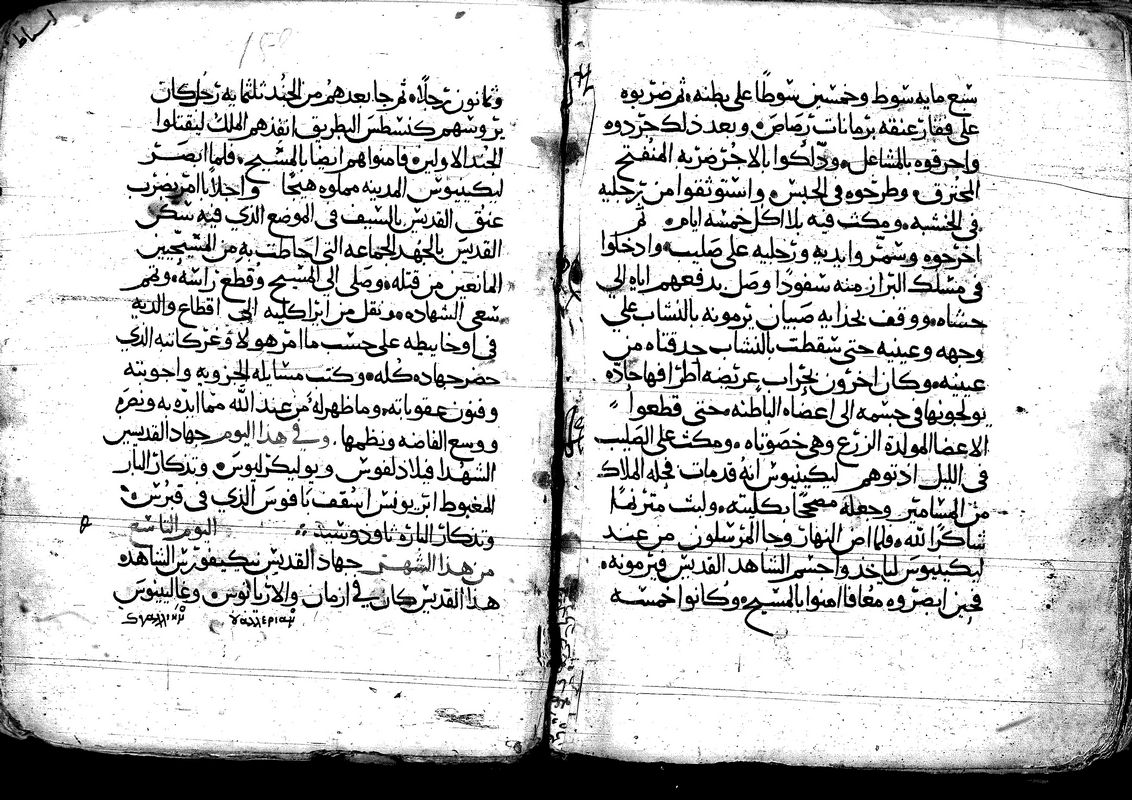 سبع مايه سوط وخمسين سوطًا على بطنه ثم ضربوه
على فقار عنقه برمانات رصاص وبعد ذلك جردوه
واحرقوه بالمشاعل ودلكوا بالاجر ضربه المنفتح
المحترق وطرحوه في الحبس واستوثقوا من رجليه
في الخشبه ومكث فيه بلا اكل خمسه ايام ثم
اخرجوه وسمروا يديه ورجليه على صليب وادخلوا
في مسلك البراز منه سفودًا وصل بدفعهم اياه الى
حشاه ووقف بحذايه صبيان يرمونه بالنشاب على
وجهه وعينيه حتى سقطت بالنشاب حدقتاه من
عينيه وكان اخرون بحراب عريضه اطرافها حاده
يولجونها في جسمه الى اعضاه الباطنه حتى قطعوا
الاعضا المولده الزرع وهى خصوتاه ومكث على الصليب
في الليل اذ توهم ليكينيوس انه قد مات فجله الملاك
من المسامير وجعله مصححًا بكليته ولبث مترنمًا
شاكرًا لله فلما اضا النهار وجا المرسلون من عند
ليكينيوس لياخذوا جسم الشاهد القديس فيرمونه
فحين ابصروه معافا امنوا بالمسيح وكانوا خمسه
وثمانون رجلًا ثم جا بعدهم من الجند ثلثمايه رجل كان
يروسهم كنسطس البطريق انفذهم الملك ليقتلوا
الجند الاولين فامنوا هم ايضا بالمسيح فلما ابصر
ليكينيوس المدينه مملوه هيجًا واجلابًا امر بضرب
عنق القديس بالسيف في الموضع الذي فيه سكن
القديس بالجهد الجماعه التى احاطت به من المسيحيين
المانعين من قتله وصلى الى المسيح وقطع راسه وتمم
سعى الشهاده ونقل من ايراكليه الى اقطاع والديه
في اوخاييطه على حسب ما امر هو لاوغر كاتبه الذي
حضر جهاده كله وكتب مسايله الجزويه واجوبته
وفنون عقوباته وما ظهر له من عند الله مما ايده به ونصره
ووسع القاضه ونظمها وفي هذا اليوم جهاد القديسين
الشهدا فيلادلفوس وبوليكرابوس وتذكار البار
المغبوط اتريونس اسقف نافوس الذي في قبرس
وتذكار الباره ثاودوسيه اليوم التاسع
من هذا الشهر جهاد القديس نيكيفورس الشاهد
هذا القديس كان في ازمان والاريانوس وغالينوس